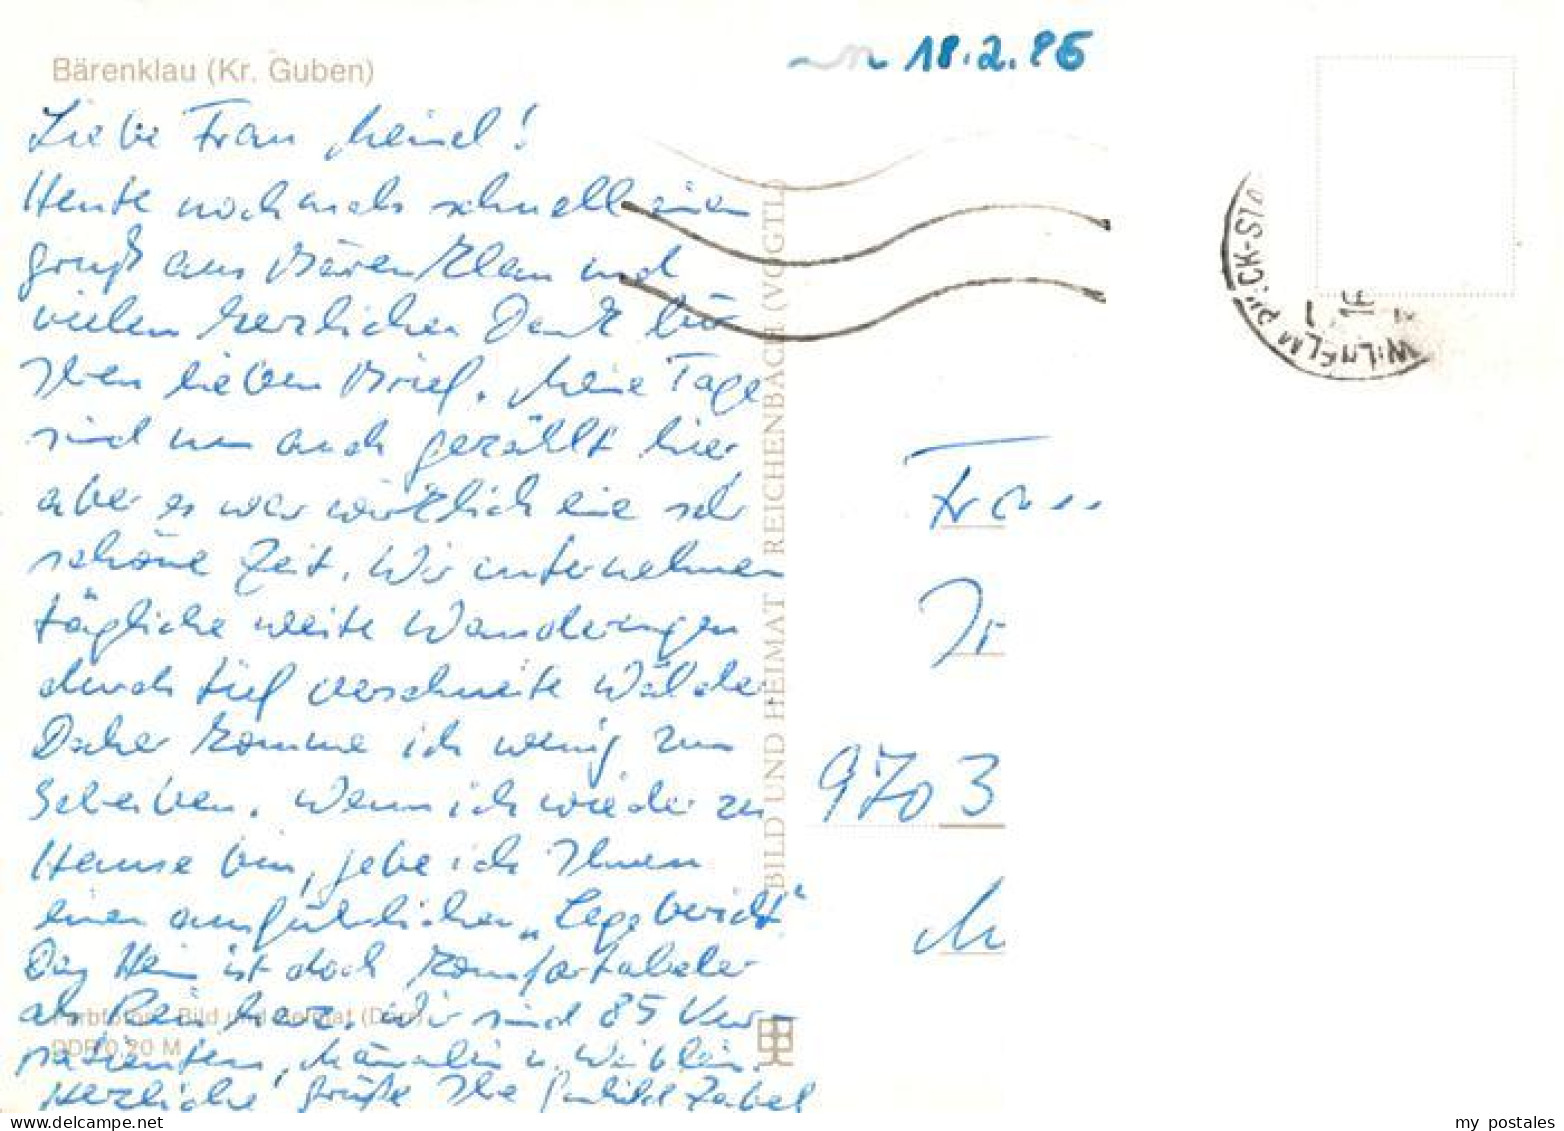 Bärenklau (Kr. Guben)
18.2.86
Liebe Frau Meinel!
Heute nochmals schnell einen
Gruß aus Bärenklau und
vielen herzlichen Dank für
Ihren lieben Brief. Meine Tage
sind nun auch gezählt hier
aber es war wirklich eine sehr
schöne Zeit. Wir unternehmen
tägliche weite Wanderungen
durch tief verschneite Wälder
Daher komme ich wenig zum
Schreiben. Wenn ich wieder zu
Hause bin, gebe ich Ihnen
einen ausführlichen „Lagebericht"
Das Heim ist doch komfortabeler
als Reinharz. Wir sind 85 Kur-
patienten, Männlein u. Weiblein.
Herzliche Grüße Ihre Zabel
Farbfotos: Bild und Heimat
DDR 0,20 M
BILD UND HEIMAT REICHENBACH (VOGTL)
WILHELM PIECK-STA
Frau
Ir
9703
M
my postales